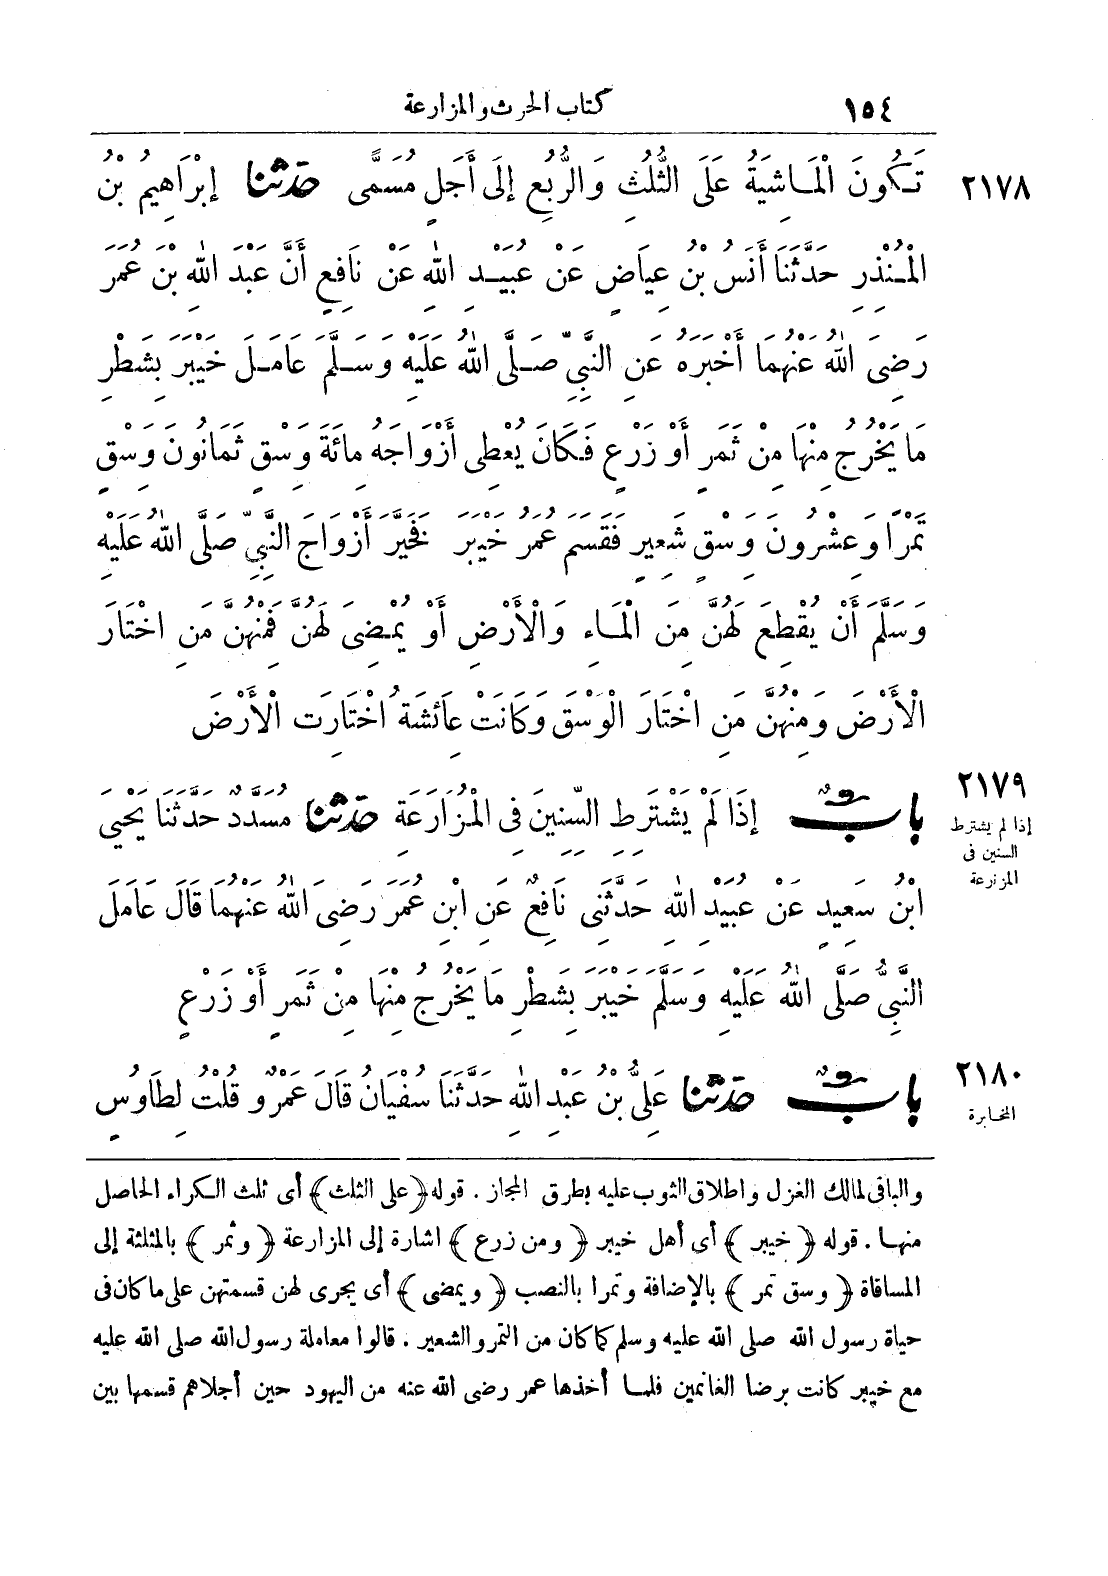 ١٥٤ كتاب الحرث والمزارعة
٢١٧٨ تَكُونَ الْمَاشِيَةُ عَلَى الثُّلُثِ وَالرُّبُعِ إِلَى أَجَلٍ مُسَمًّى حدثنا إِبْرَاهِيمُ بْنُ
الْمُنْذِرِ حَدَّثَنَا أَنَسُ بْنُ عِيَاضٍ عَنْ عُبَيْدِ اللّٰهِ عَنْ نَافِعٍ أَنَّ عَبْدَ اللّٰهِ بْنَ عُمَرَ
رَضِىَ اللّٰهُ عَنْهُمَا أَخْبَرَهُ عَنِ النَّبِىِّ صَلَّى اللّٰهُ عَلَيْهِ وَسَلَّمَ عَامَلَ خَيْبَرَ بِشَطْرِ
مَا يَخْرُجُ مِنْهَا مِنْ ثَمَرٍ أَوْ زَرْعٍ فَكَانَ يُعْطِى أَزْوَاجَهُ مِائَةَ وَسْقٍ ثَمَانُونَ وَسْقِ
تَمْرًا وَعِشْرُونَ وَسْقِ شَعِيرٍ فَقَسَمَ عُمَرُ خَيْبَرَ فَخَيَّرَ أَزْوَاجَ النَّبِىِّ صَلَّى اللّٰهُ عَلَيْهِ
وَسَلَّمَ أَنْ يُقْطِعَ لَهُنَّ مِنَ الْمَاءِ وَالْأَرْضِ أَوْ يُمْضِىَ لَهُنَّ فَمِنْهُنَّ مَنِ اخْتَارَ
الْأَرْضَ وَمِنْهُنَّ مَنِ اخْتَارَ الْوَسْقَ وَكَانَتْ عَائِشَةُ اخْتَارَتِ الْأَرْضَ
٢١٧٩ بابٌ إِذَا لَمْ يَشْتَرِطِ السِّنِينَ فِى الْمُزَارَعَةِ حدثنا مُسَدَّدٌ حَدَّثَنَا يَحْيَى
إذا لم يشترط
السنين فى
المزرعة
ابْنُ سَعِيدٍ عَنْ عُبَيْدِ اللّٰهِ حَدَّثَنِى نَافِعٌ عَنِ ابْنِ عُمَرَ رَضِىَ اللّٰهُ عَنْهُمَا قَالَ عَامَلَ
النَّبِىُّ صَلَّى اللّٰهُ عَلَيْهِ وَسَلَّمَ خَيْبَرَ بِشَطْرِ مَا يَخْرُجُ مِنْهَا مِنْ ثَمَرٍ أَوْ زَرْعٍ
٢١٨٠ بابٌ حدثنا عَلِىُّ بْنُ عَبْدِ اللّٰهِ حَدَّثَنَا سُفْيَانُ قَالَ عَمْرٌو قُلْتُ لِطَاوُسٍ
المخابرة
والباقى لمالك الغزل واطلاق الثوب عليه بطرق المجاز . قوله ﴿على الثلث﴾ أى ثلث الكراء الحاصل
منها . قوله ﴿خيبر﴾ أى أهل خيبر ﴿ومن زرع﴾ اشارة إلى المزارعة ﴿وثمر﴾ بالمثلثة إلى
المساقاة ﴿وسق تمر﴾ بالإضافة وتمرا بالنصب ﴿ويمضى﴾ أى يجرى لهن قسمتهن على ما كان فى
حياة رسول الله صلى الله عليه وسلم كما كان من التمر والشعير . قالوا معاملة رسول الله صلى الله عليه
مع خيبر كانت برضا الغانمين فلما أخذها عمر رضى الله عنه من اليهود حين أجلاهم قسمها بين